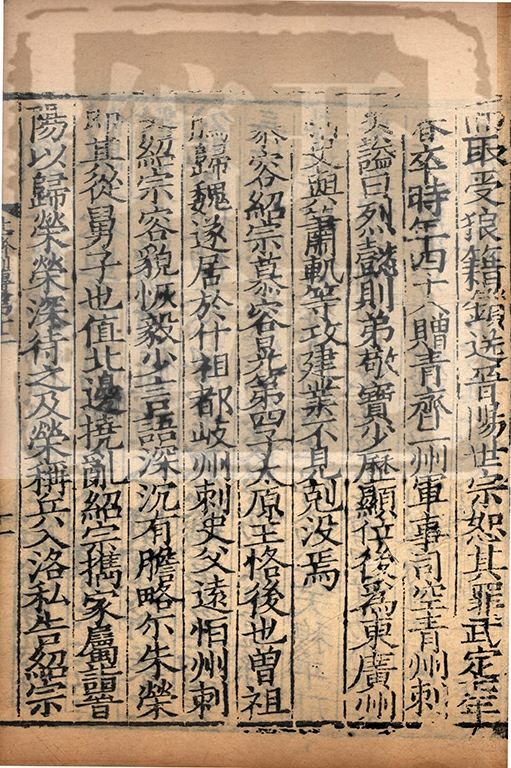 而取受狼籍鎖送晉陽世宗恕其罪武定七年
春卒時年四十贈青齊二州軍事司空青州刺
史謚曰烈懿則弟敬寶少歷顯位後爲東廣州
刺史與蕭軌等攻建業不見剋没焉
慕容紹宗慕容晃第四子太原王恪後也曾祖
騰歸魏遂居於代祖都岐州刺史父遠恒州刺
史紹宗容貌恢毅少言語深沉有膽略尒朱榮
即其從舅子也值北邊撓亂紹宗攜家屬詣晉
陽以歸榮榮深待之及榮稱兵入洛私告紹宗